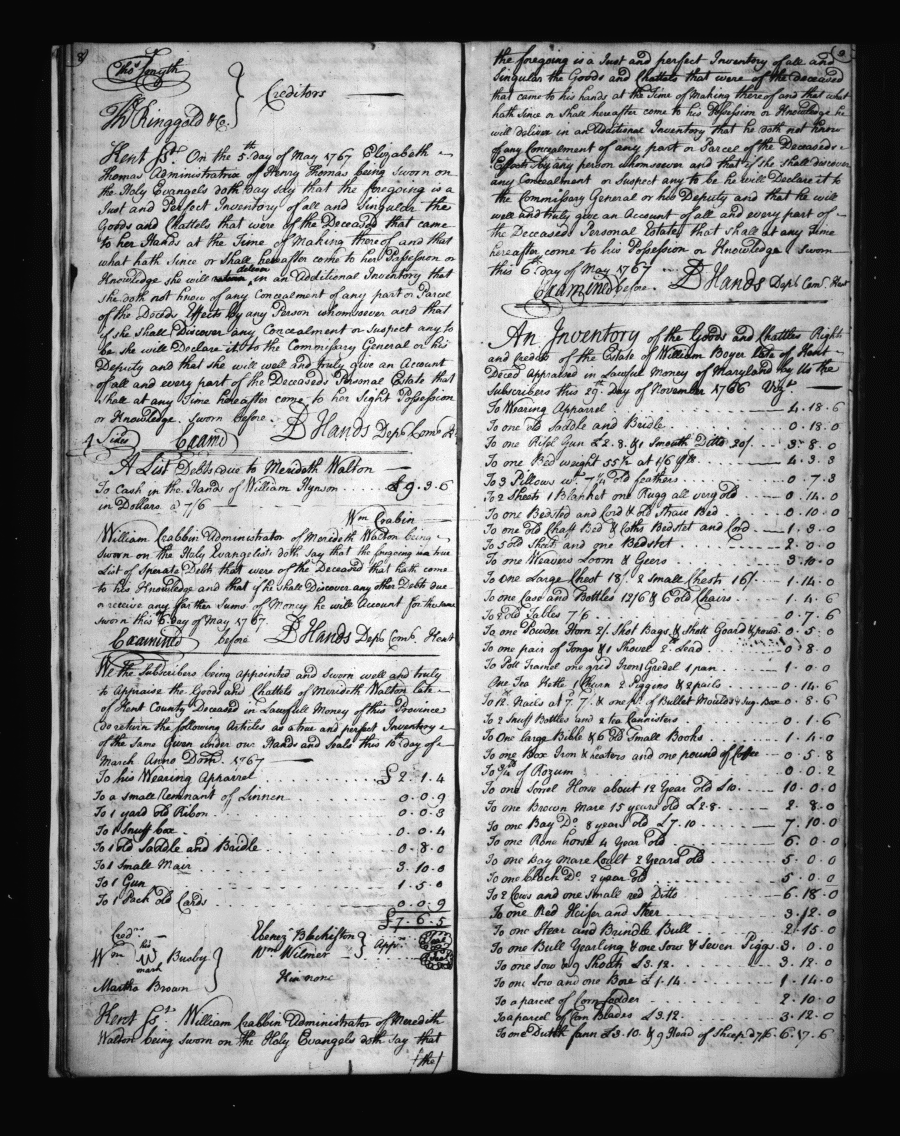 8
Thos Smyth
Creditors
Ths Ringgold & Co.
Kent Sst. On the 5th day of May 1767 Elizabeth
Thomas Administratrix of Henry Thomas being Sworn on
the Holy Evangels doth say that the foregoing is a
Just and Perfect Inventory of all and Singular the
Goods and Chattels that were of the Deceased that came
to her Hands at the Time of Making thereof and that
what hath Since or Shall hereafter come to her Possession or
Knowledge she will deliver in an Additional Inventory that
She doth not know of any Concealment of any part or Parcel
of the Deceds Effects by any Person whomsoever and that
if she Shall Discover any Concealment or Suspect any to
be She will Declare it to the Commissary General or his
Deputy and that she will well and truly give an Account
of all and every part of the Deceaseds Personal Estate that
shall at any Time hereafter come to her Sight Possession
or Knowledge. Sworn before.
4 Sides Examd D Hands Depy Comy Kt
A List Debts due to Merideth Walton
To Cash in the Hands of William Hynson £9.3.6
in Dollars @ 7/6
Wm Crabin
William Crabbin Administrator of Merideth Walton being
Sworn on the Holy Evangelists doth Say that the foregoing is a true
List of Sperate Debts that were of the Deceased that hath come
to his Knowledge and that if he shall Discover any other Debts due
or receive any farther Sums of Money he will Account for the same
Sworn this 6 day of May 1767.
Examined before D Hands Depy Comy. Kent
We the Subscribers being Appointed and Sworn well and truly
to Appraise the Goods and Chattels of Merideth Walton late
of Kent County Deceased in Lawfull Money of this Province
do return the following Articles as a true and perfect Inventory
of the Same Given under our Hands and Seals this 10th day of
March Anno Dom. 1767
To his Wearing Apparrel £2.1.4
To a small Remnant of Linnen 0.0.9
To 1 yard old Ribon 0.0.3
To 1 Snuff box 0.0.4
To 1 old Saddle and Bridle 0.8.0
To 1 Small Mair 3.10.0
To 1 Gun 1.5.0
To 1 Pack Old Cards 0.0.9
£7.6.5
Credrs
Wm his W mark Busby
Martha Brown
Ebenezr Blackiston
Wm Wilmer
Apprs
Kin none
Kent Sst. William Crabbin Administrator of Merideth
Walton being Sworn on the Holy Evangels doth Say that
(the)
the foregoing is a Just and perfect Inventory of all and
Singular the Goods and Chattels that were of the deceased
that came to his hands at the Time of Making thereof and that what
hath Since or Shall hereafter come to his Possession or Knowledge he
will deliver in an Additional Inventory that he doth not know
of any Concealment of any part or Parcel of the Deceaseds
Effects by any person whomsoever and that if he shall discover
any Concealment or Suspect any to be he will Declare it to
the Commissary General or his Deputy and that he will
well and truly give an Account of all and every part of
the Deceased Personal Estate that shall at any Time
hereafter come to his Possession or Knowledge. Sworn
this 6th day of May 1767
Examined before. D Hands Depy Comy. Kent
An Inventory of the Goods and Chattles Rights
and Credits of the Estate of William Boyer late of Kent
Deced Appraised in Lawful Money of Maryland by Us the
Subscribers this 29th Day of November 1766 Vizt
To Wearing Apparrel 4.18.6
To one old Saddle and Bridle 0.18.0
To one Rifel Gun £2.8. & 1 Smouth Ditto 20/. 3.8.0
To one Bed weight 55 1/2 at 1/6 4.3.3
To 3 Pillows wt 7 1/4 old feathers 0.7.3
To 2 Sheets 1 Blanket one Rugg all very old 0.14.0
To one Bedsted and Cord & old Straw Bed 0.10.0
To one old Chaff Bed & Cloths Bedstet and Cord 1.3.0
To 5 old Sheets and one Bedstet 2.0.0
To one Weavers Loom & Geers 3.10.0
To one Large Chest 18/. 2 Small Chests 16/. 1.14.0
To one Case and Bottles 12/6 & 6 old Chairs 1.4.6
To 2 old Tables 7/6 0.7.6
To one Powder Horn 2/. Shot Bags & Shott Goard & powd. 0.5.0
To one pair of Tongs & 1 Shovel 2 Sead 0.8.0
To Pott Tramel one grid Iron 1 Gredel 1 pan 1.0.0
One Tea Kettle 1 Churn 2 Piggins & 2 pails 0.14.6
To Nails at 7 & one pr. of Bullet Moulds & Sug. Box 0.8.6
To 2 Snuff Bottles and 2 tea Cannisters 0.1.6
To One large Bible & 6 Old Small Books 1.4.0
To one Box Iron & heaters and one pound of Coffee 0.5.8
To 3/4 of Rozum 0.0.2
To one Sorrel Horse about 12 Year Old £10. 10.0.0
To one Brown Mare 15 years old £2.8 2.8.0
To one Bay Do 8 years old £7.10 7.10.0
To one Rone horse 4 Year old 6.0.0
To one Bay mare Coult 2 Years old 5.0.0
To one Black Do. 2 year old 5.0.0
To 2 Cows and one Small red Ditto 6.18.0
To one Red Heifer and Steer 3.12.0
To one Stear and Brindle Bull 2.15.0
To one Bull Yearling & one Sow & Seven Piggs 3.0.0
To one Sow & 9 Shoats £3.12. 3.12.0
To one Sow and one Bore £1.14 1.14.0
To a parcel of Corn fodder 2.10.0
To a parcel of Corn Blades £3.12. 3.12.0
To one Dutch fann £3.10. & 9 Head of Sheep @ 7/6. 6.17.6